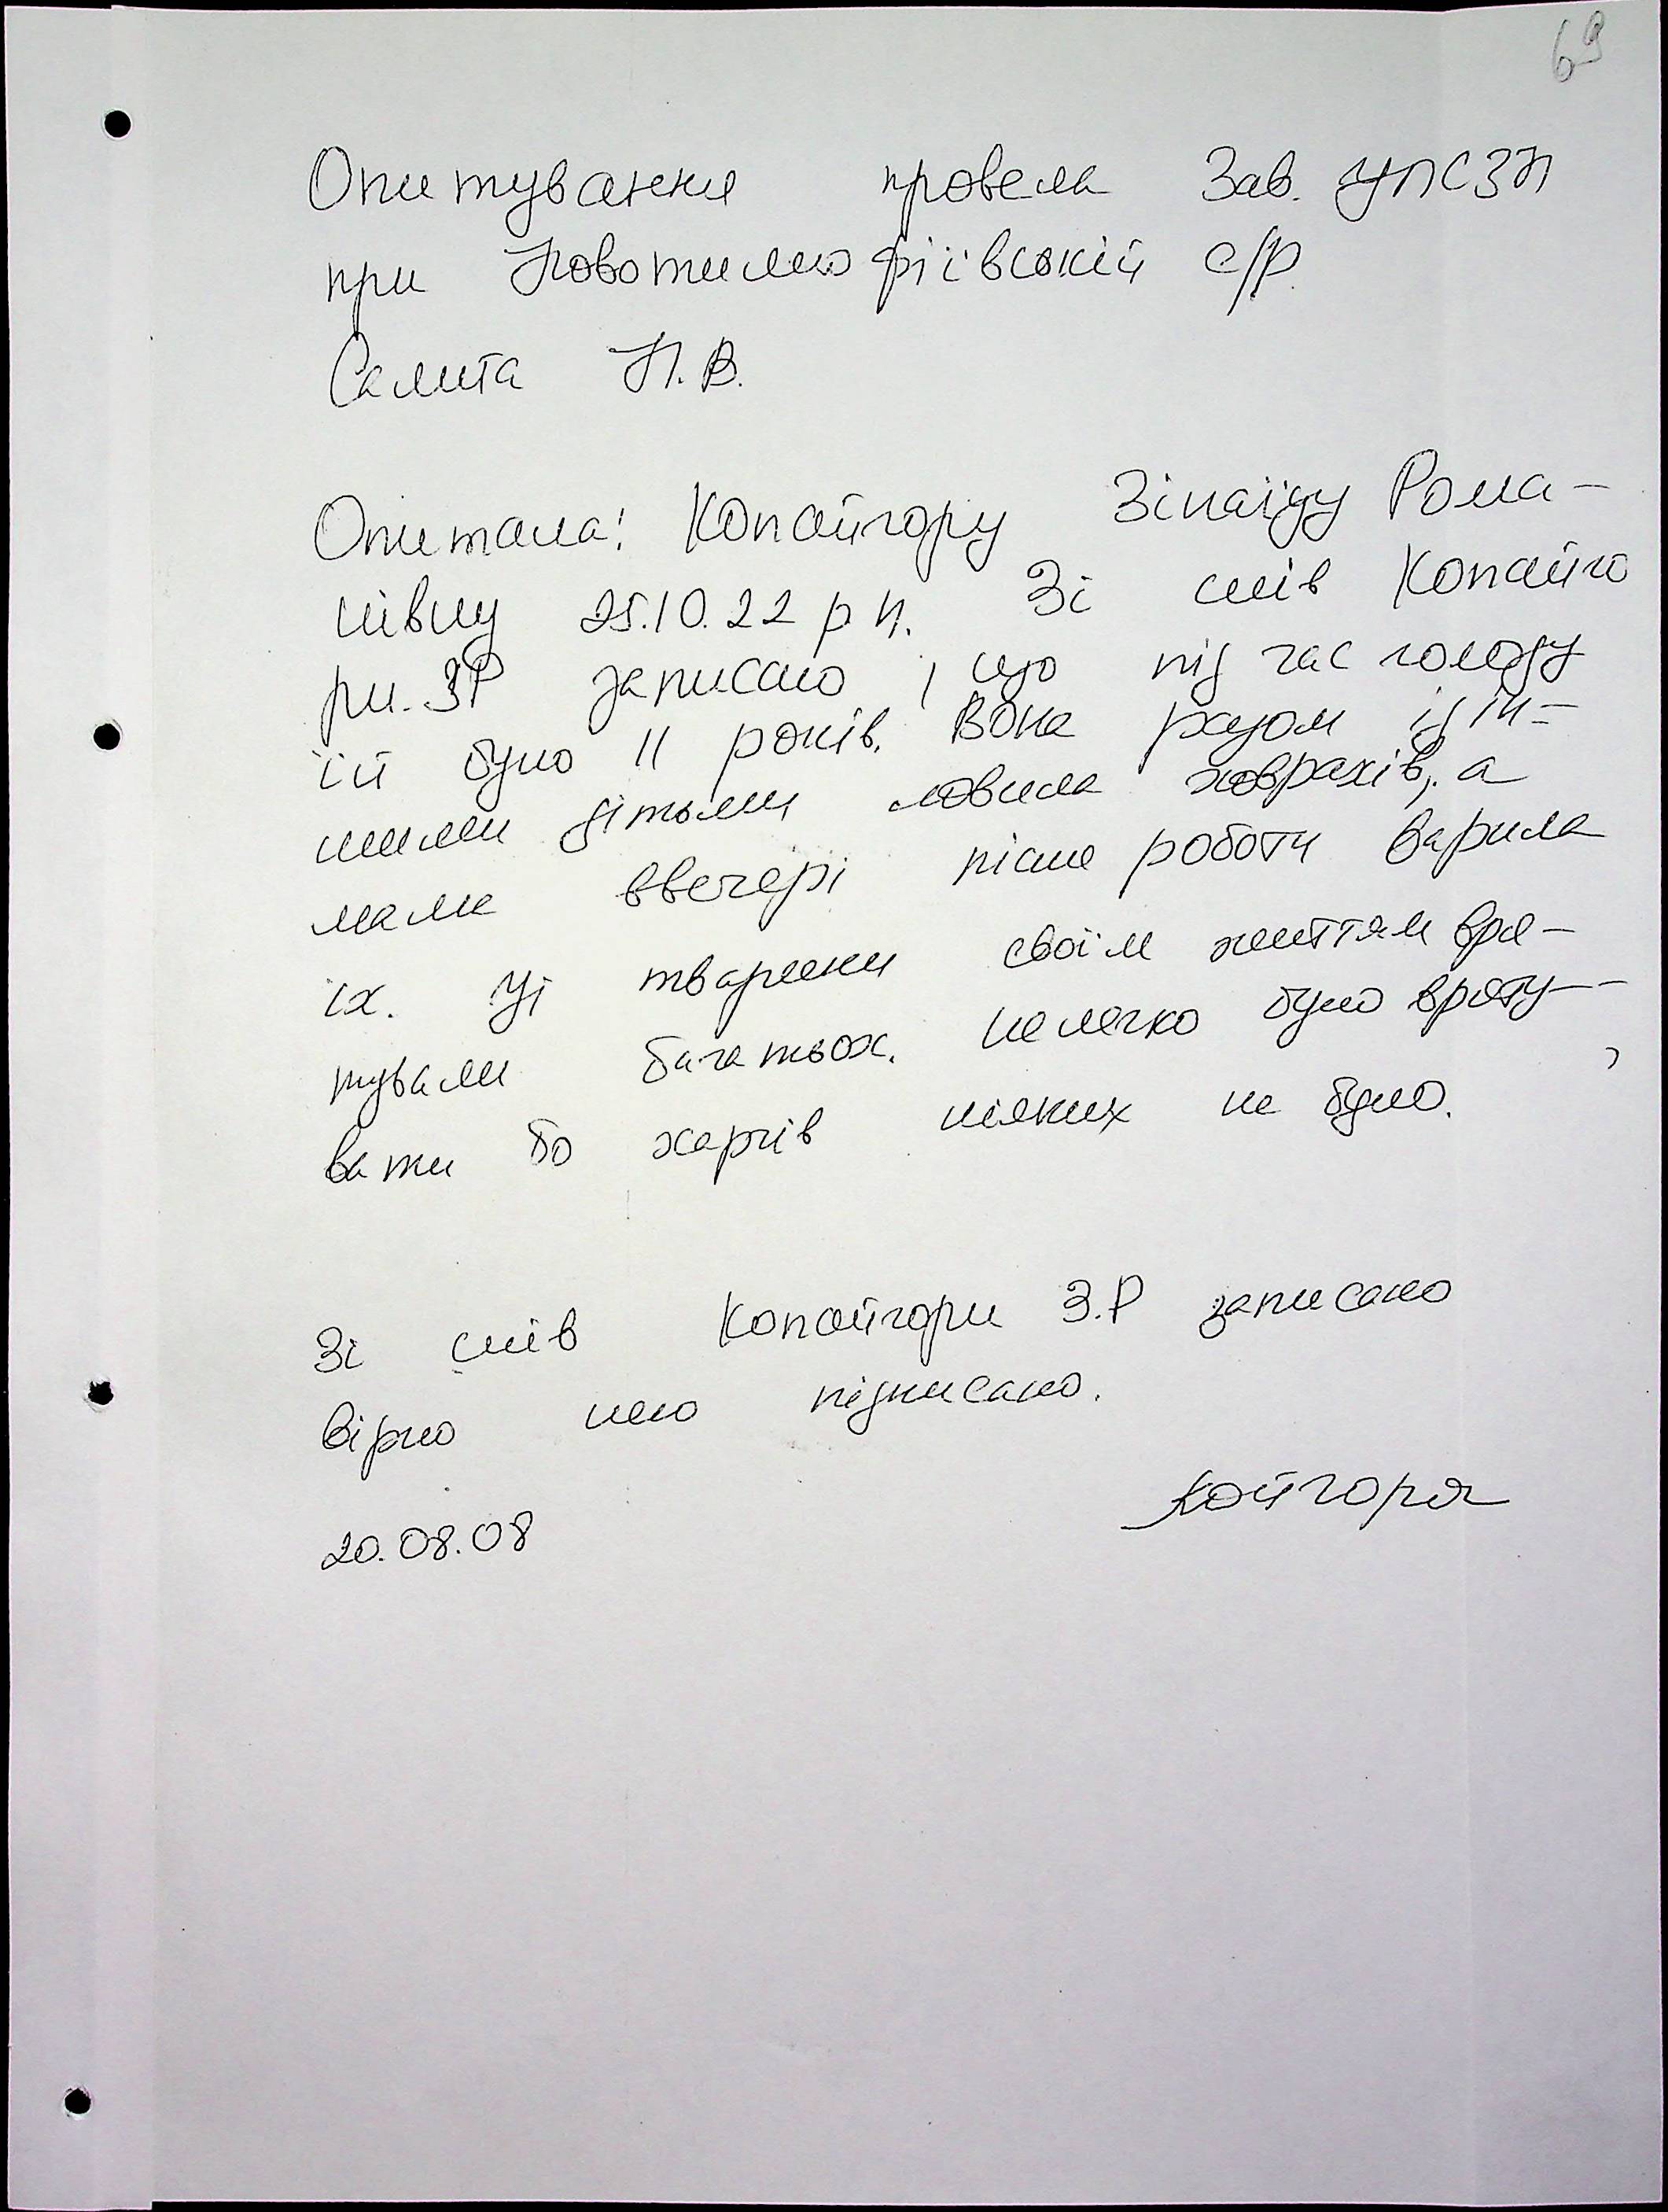 69
Опитування провела Зав. УПСЗН
при Новотимофіївській с/р.
Салита Н.В.
Опитала: Копайгору Зінаїду Рома-
нівну 25.10.22 р н. Зі слів Копайго
ри. ЗР записано, що під час голоду
їй було 11 років. Вона разом із ін=
шими дітьми ловила ховрахів, а
мама ввечері після роботи варила
їх. Ці тварини своїм життям вря-
тували багатьох. Нелегко було вряту--
вати бо харчів ніяких не було.
Зі слів Копайгори З.Р записано
вірно мною підписано.
20.08.08
Койгора